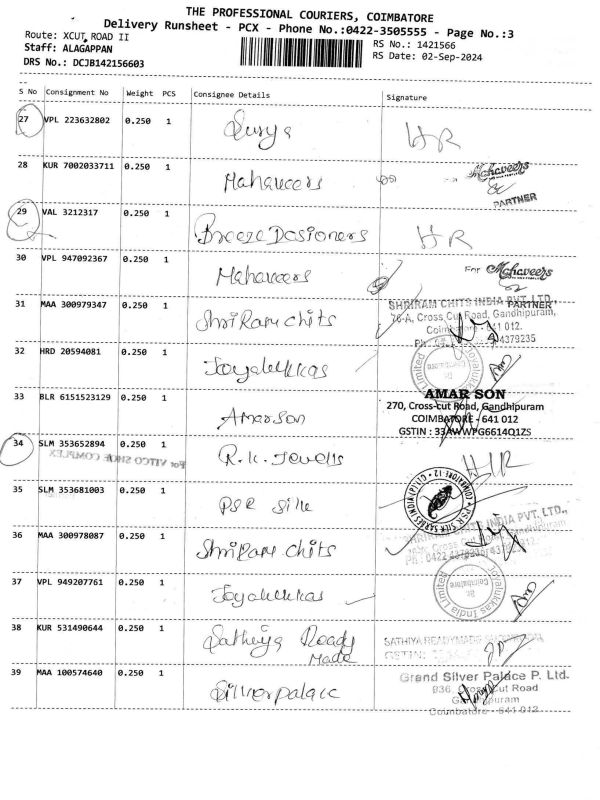 THE PROFESSIONAL COURIERS, COIMBATORE
Delivery Runsheet - PCX - Phone No.:0422-3505555 - Page No.:3
Route: XCUT ROAD II
RS No.: 1421566
Staff: ALAGAPPAN
RS Date: 02-Sep-2024
DRS No.: DCJB142156603
S No Consignment No Weight PCS Consignee Details Signature
27 VPL 223632802 0.250 1 Surya HR
28 KUR 7002033711 0.250 1 Mahaveers Mahaveers
PARTNER
29 VAL 3212317 0.250 1 Breeze Dasioners HR
30 VPL 947092367 0.250 1 Mahaveers For Mahaveers
PARTNER
31 MAA 300979347 0.250 1 Shri Ram chits SHRIRAM CHITS INDIA PVT. LTD.
76-A, Cross Cut Road, Gandhipuram,
Coimbatore - 641 012.
32 HRD 20594081 0.250 1 Joyalukkas
33 BLR 6151523129 0.250 1 Amarson AMAR SON
270, Cross-cut Road, Gandhipuram
COIMBATORE - 641 012
GSTIN : 33AWWPG6614Q1ZS
34 SLM 353652894 0.250 1 R.K. Jewells HR
For VITCO SHOE COMPLEX
35 SLM 353681003 0.250 1 PSR Silk
36 MAA 300978087 0.250 1 Shri Ram chits
37 VPL 949207761 0.250 1 Joyalukkas Joyalukkas India Limited
Coimbatore
38 KUR 531490644 0.250 1 Sathiya Ready
Made
39 MAA 100574640 0.250 1 Silverpalace Grand Silver Palace P. Ltd.
936, Cross Cut Road
Gandhipuram
Coimbatore - 641 012